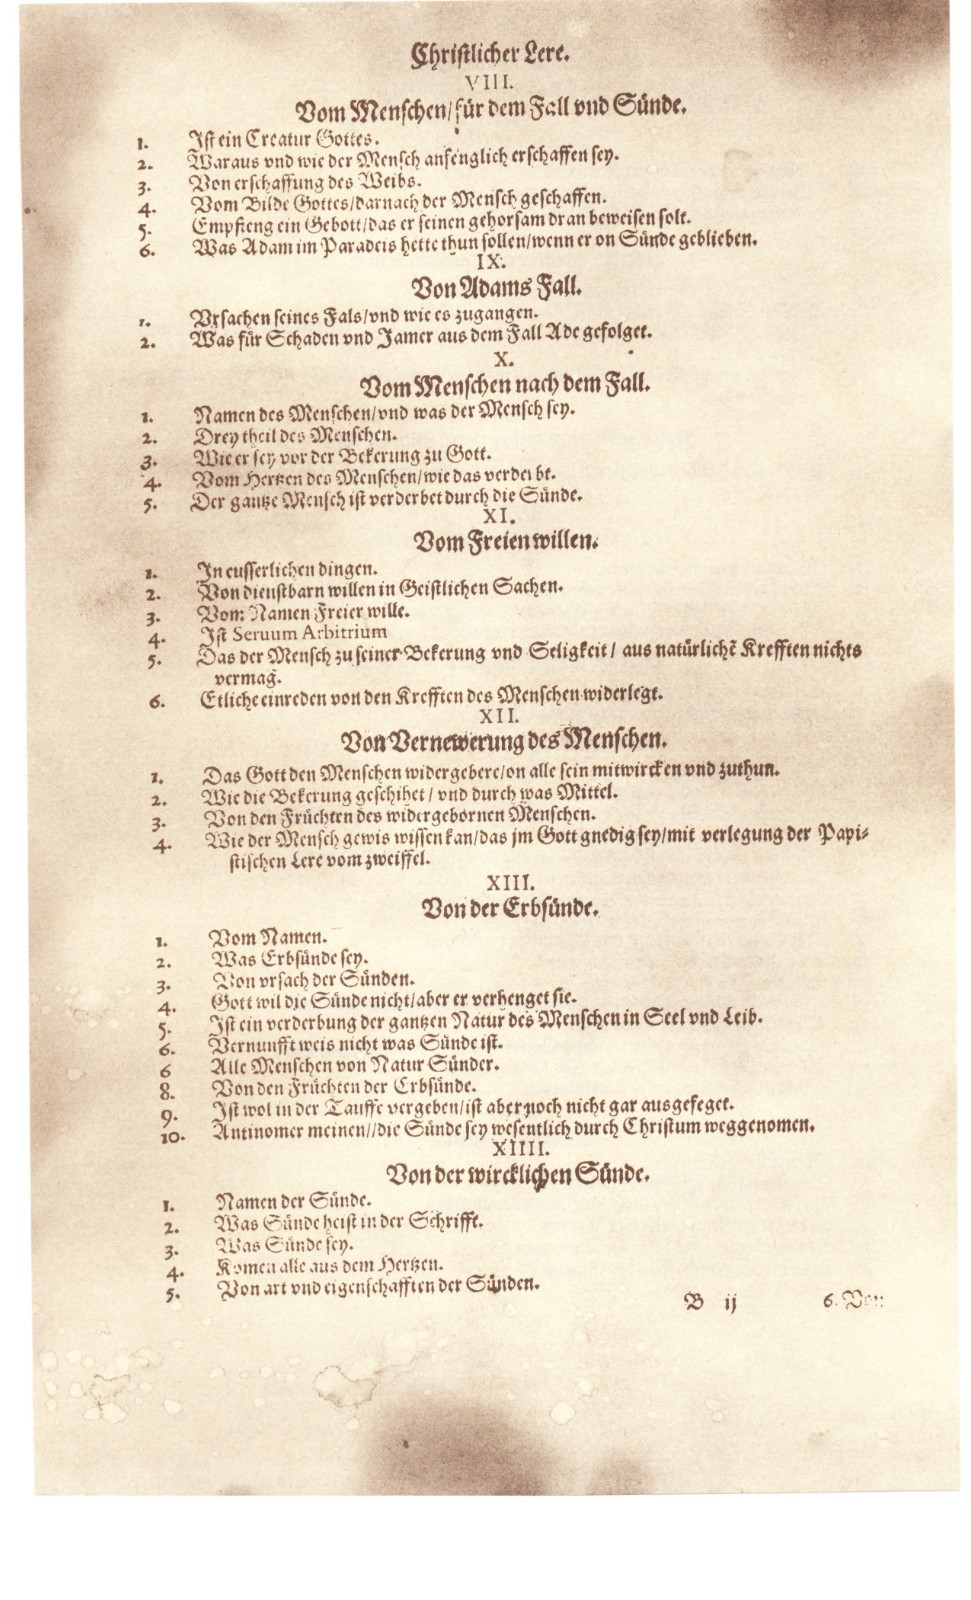 Christlicher Lere.
VIII.
Vom Menschen/für dem Fall vnd Sünde.
1. Ist ein Creatur Gottes.
2. Waraus vnd wie der Mensch anfenglich erschaffen sey.
3. Von erschaffung des Weibs.
4. Vom Bilde Gottes/darnach der Mensch geschaffen.
5. Empfieng ein Gebott/das er seinen gehorsam dran beweisen solt.
6. Was Adam im Paradeis hette thun sollen/wenn er on Sünde geblieben.
IX.
Von Adams Fall.
1. Vrsachen seines Fals/vnd wie es zugangen.
2. Was für Schaden vnd Jamer aus dem Fall Ade gefolget.
X.
Vom Menschen nach dem Fall.
1. Namen des Menschen/vnd was der Mensch sey.
2. Drey theil des Menschen.
3. Wie er sey vor der Bekerung zu Gott.
4. Vom Hertzen des Menschen/wie das verderbt.
5. Der gantze Mensch ist verderbet durch die Sünde.
XI.
Vom Freien willen.
1. In eusserlichen dingen.
2. Von dienstbarn willen in Geistlichen Sachen.
3. Vom Namen Freier wille.
4. Ist Seruum Arbitrium
5. Das der Mensch zu seiner Bekerung vnd Seligkeit/ aus natürlichẽ Krefften nichts
vermag.
6. Etliche einreden von den Krefften des Menschen widerlegt.
XII.
Von Vernewerung des Menschen.
1. Das Gott den Menschen widergebere/on alle sein mitwircken vnd zuthun.
2. Wie die Bekerung geschihet/ vnd durch was Mittel.
3. Von den Früchten des widergebornen Menschen.
4. Wie der Mensch gewis wissen kan/das jm Gott gnedig sey/mit verlegung der Papi-
stischen Lere vom zweiffel.
XIII.
Von der Erbsünde.
1. Vom Namen.
2. Was Erbsünde sey.
3. Von vrsach der Sünden.
4. Gott wil die Sünde nicht/aber er verhenget sie.
5. Ist ein verderbung der gantzen Natur des Menschen in Seel vnd Leib.
6. Vernunfft weis nicht was Sünde ist.
6 Alle Menschen von Natur Sünder.
8. Von den Früchten der Erbsünde.
9. Ist wol in der Tauffe vergeben/ist aber noch nicht gar ausgefeget.
10. Antinomer meinen//die Sünde sey wesentlich durch Christum weggenomen.
XIIII.
Von der wircklichen Sünde.
1. Namen der Sünde.
2. Was Sünde heist in der Schrifft.
3. Was Sünde sey.
4. Komen alle aus dem Hertzen.
5. Von art vnd eigenschafften der Sünden.
B ij 6. Von